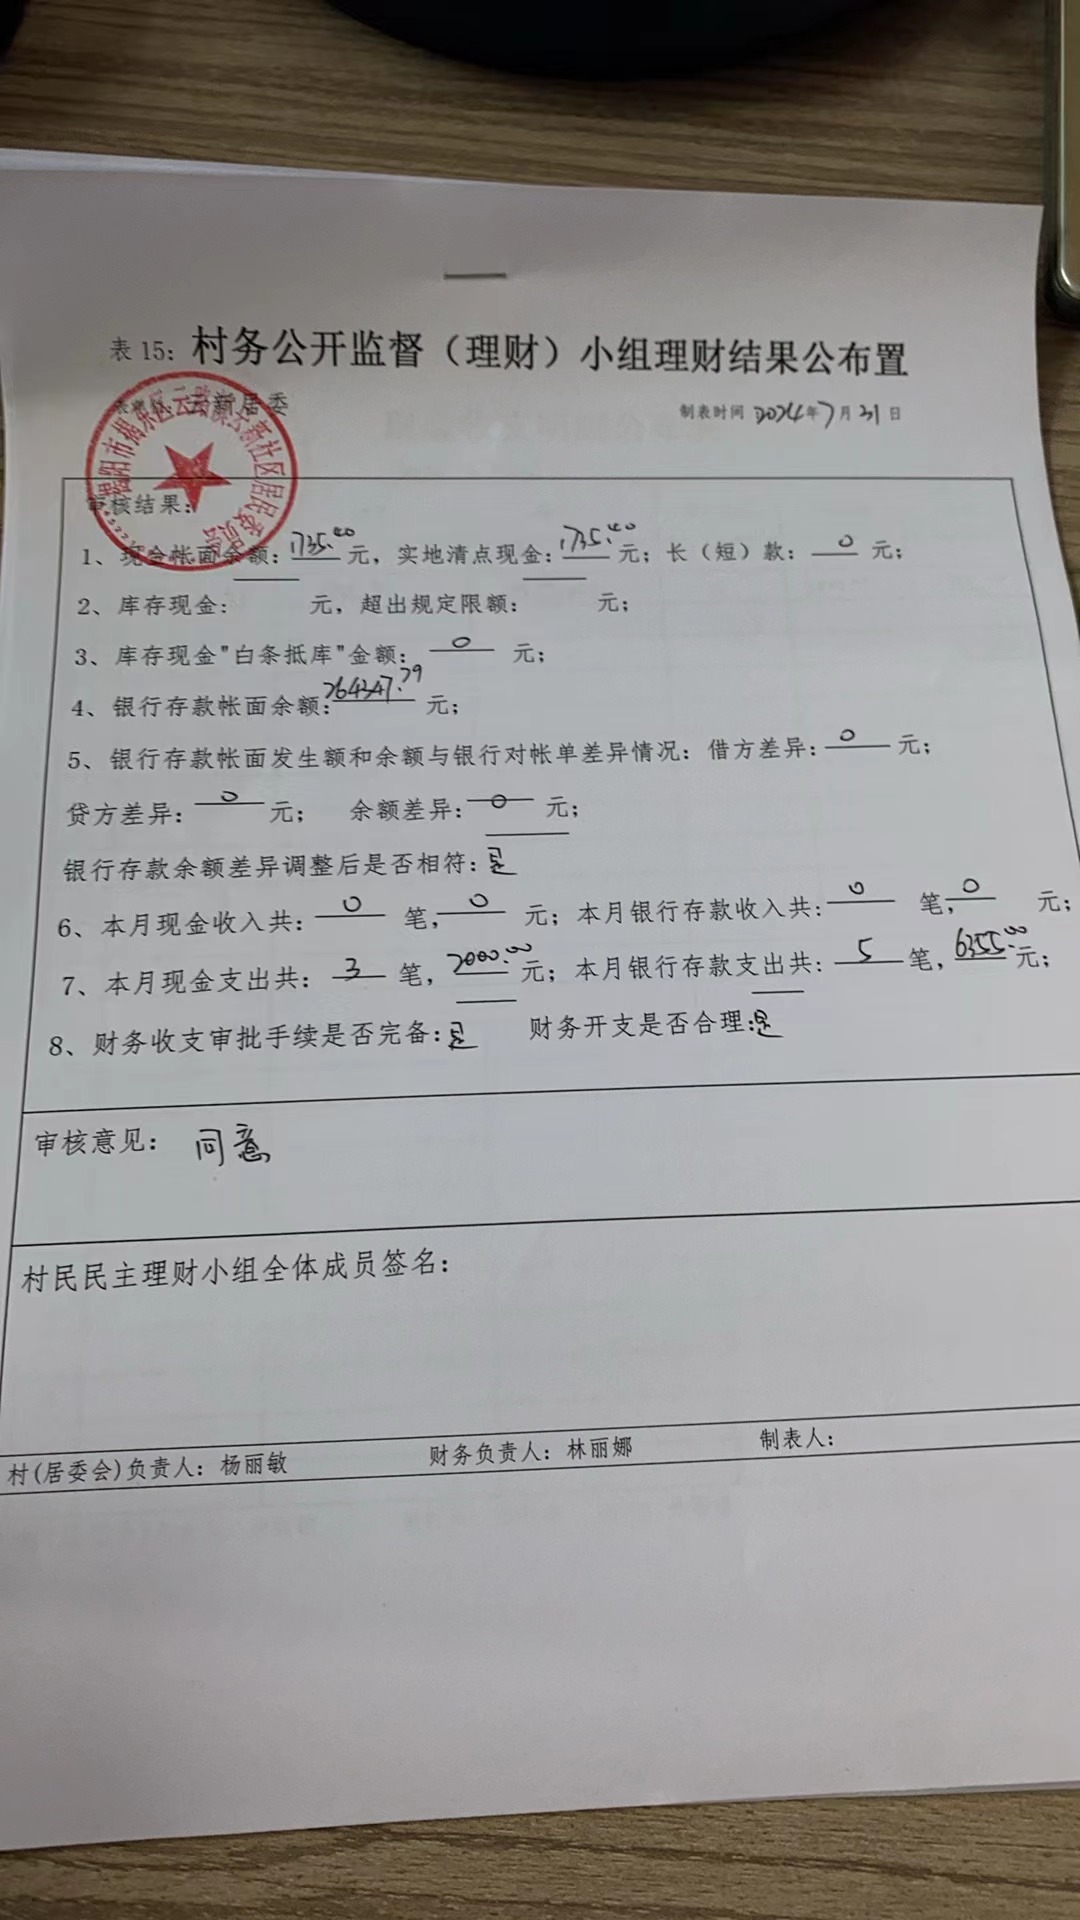 表 15: 村务公开监督（理财）小组理财结果公布置
云新居委
制表时间 2024年7月31日
揭阳市揭东区云路镇云新社区居民委员会
审核结果:
1、现金帐面余额: 1735.40 元，实地清点现金: 1735.40 元；长（短）款: 0 元；
2、库存现金: 元，超出规定限额: 元；
3、库存现金"白条抵库"金额: 0 元；
4、银行存款帐面余额: 264347.79 元；
5、银行存款帐面发生额和余额与银行对帐单差异情况: 借方差异: 0 元；
贷方差异: 0 元； 余额差异: 0 元；
银行存款余额差异调整后是否相符: 是
6、本月现金收入共: 0 笔, 0 元；本月银行存款收入共: 0 笔, 0 元；
7、本月现金支出共: 3 笔, 2000.00 元；本月银行存款支出共: 5 笔, 6355.00 元；
8、财务收支审批手续是否完备: 是 财务开支是否合理: 是
审核意见: 同意
村民民主理财小组全体成员签名:
村(居委会)负责人: 杨丽敏 财务负责人: 林丽娜 制表人: